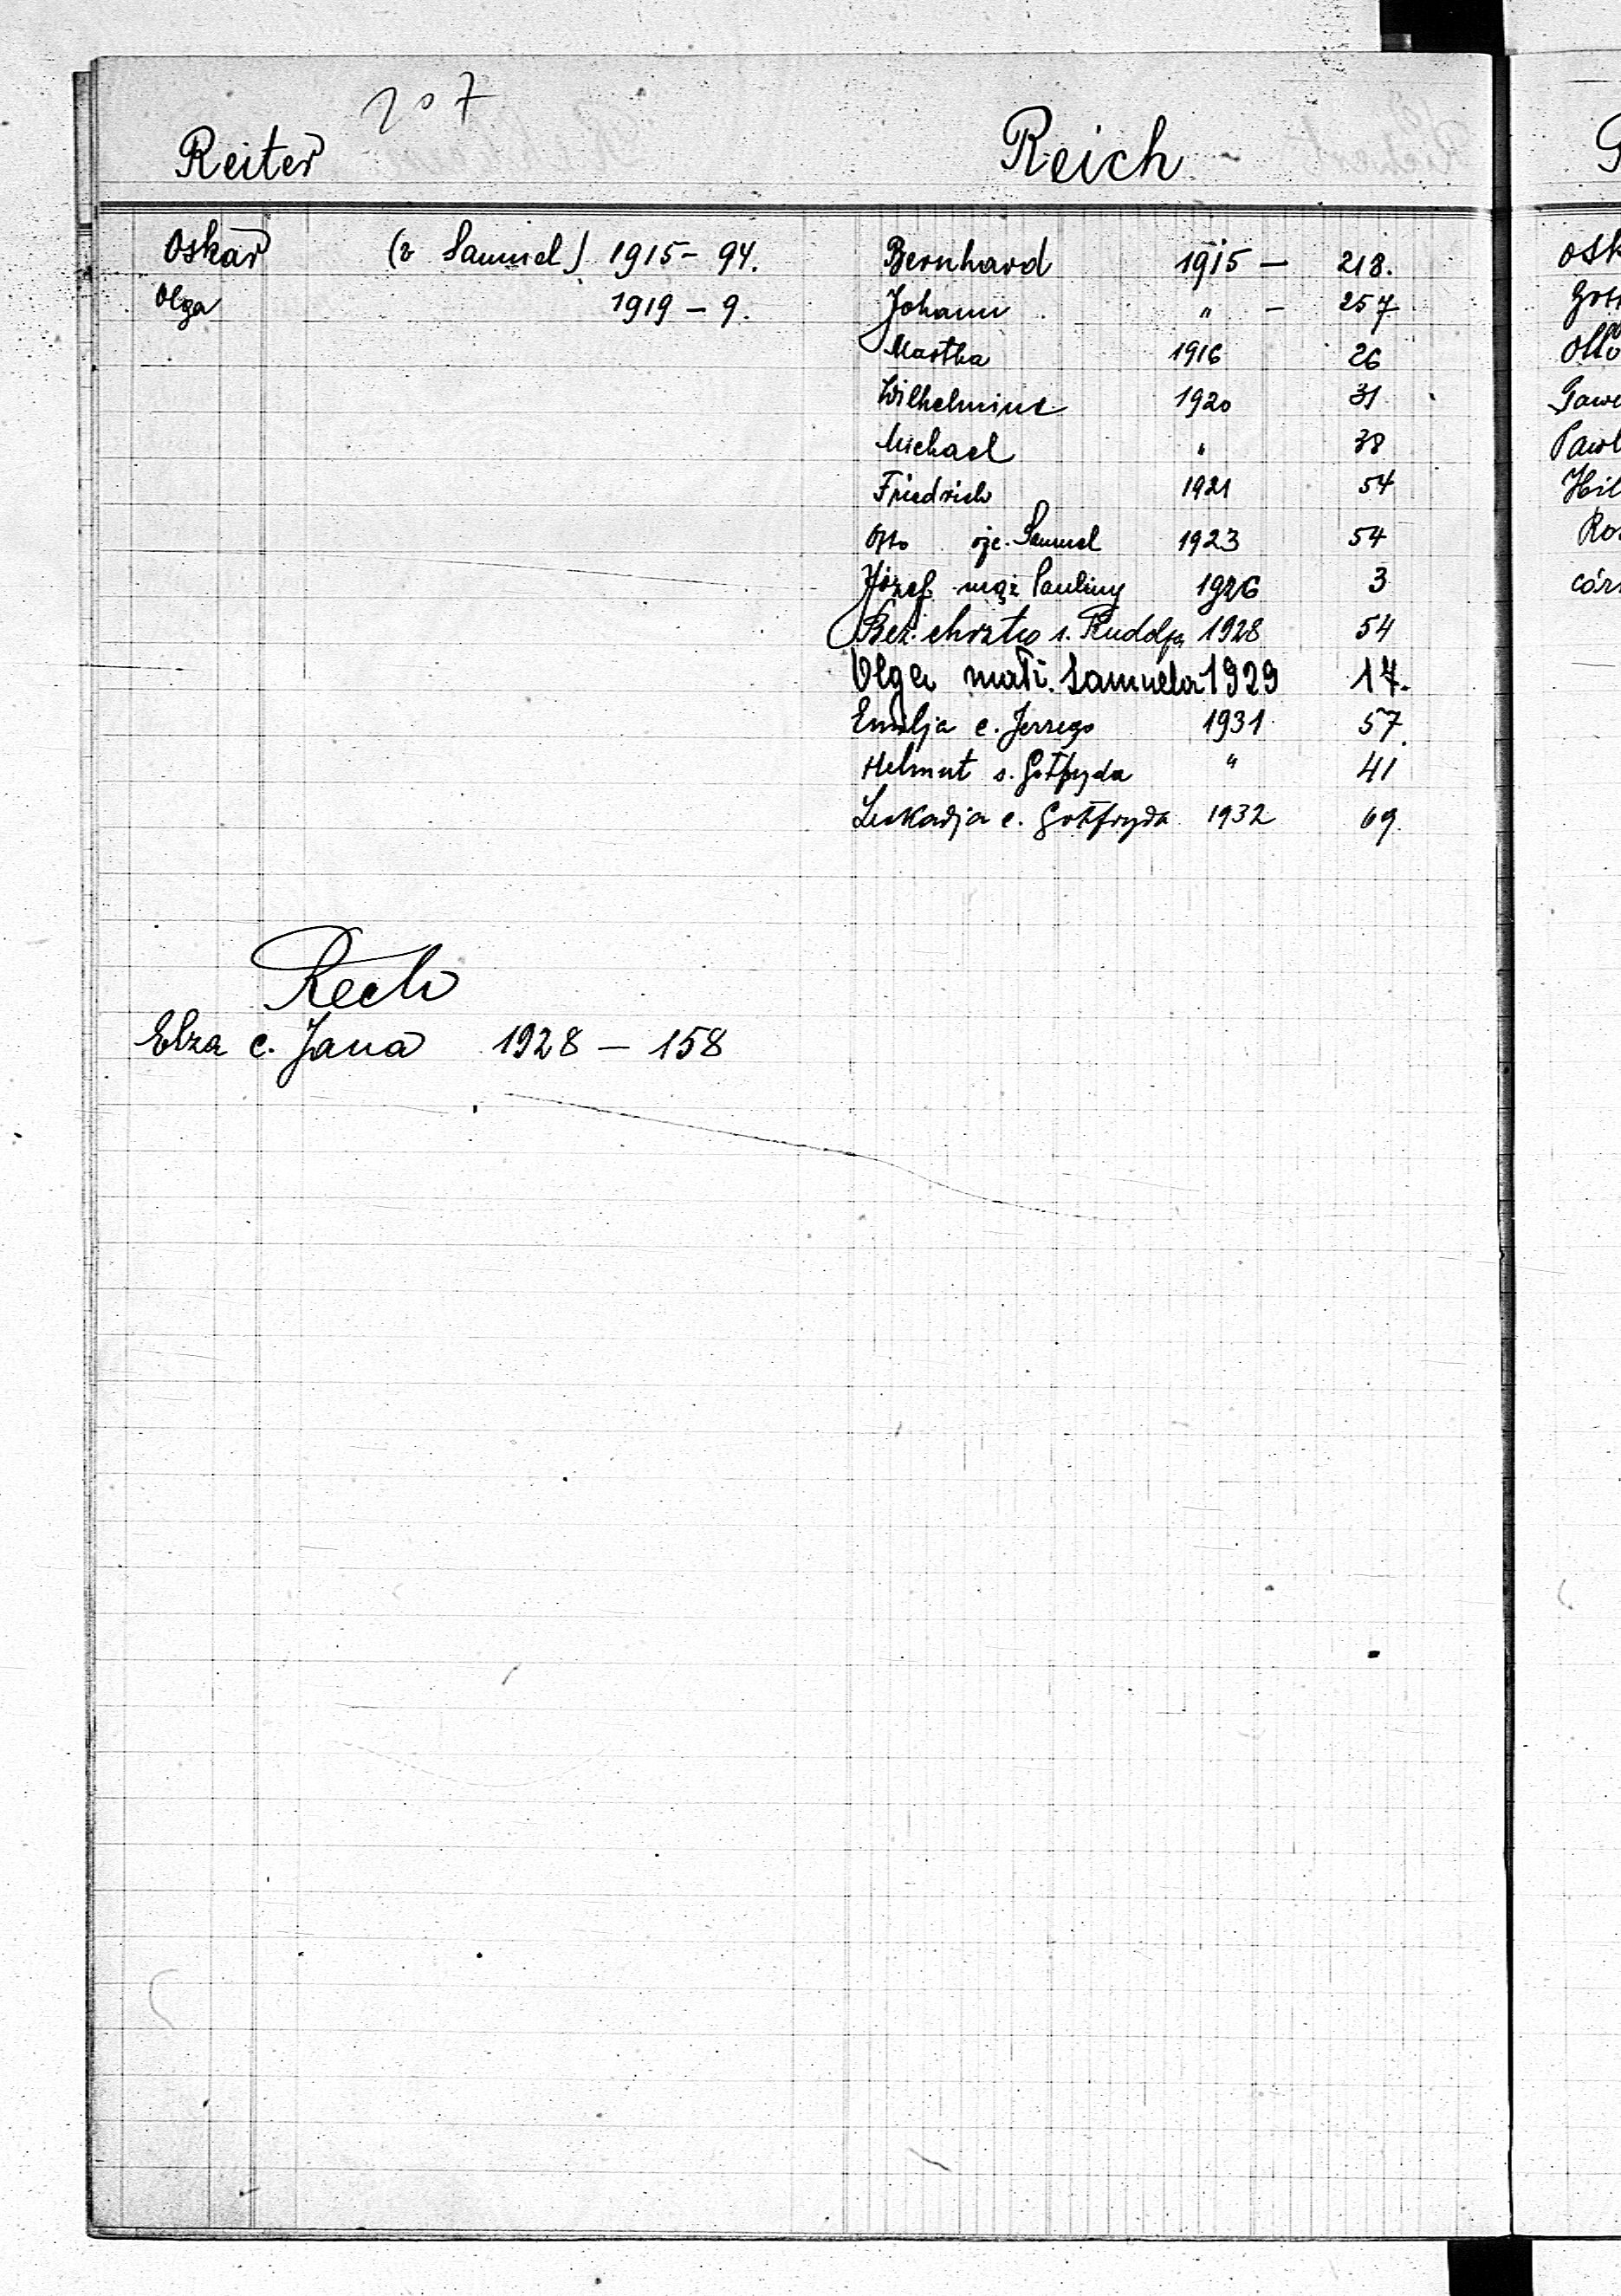 207
Reiter
Oskar (v Samuel) 1915 - 94.
Olga 1919 - 9.
Rech
Elza c. Jana 1928 - 158
Reich
Bernhard 1915 - 218.
Johann " - 257
Martha 1916 26
Wilhelmine 1920 31
Michael " 38
Friedrich 1921 54
Otto ojc. Samuel 1923 54
Józef mąż Pauliny 1926 3
Bez. chrztu s. Rudolfa 1928 54
Olga małż. Samuela 1929 17.
Emilja c. Jerzego 1931 57.
Helmut s. Gotfryda " 41
Leokadja c. Gotfryda 1932 69